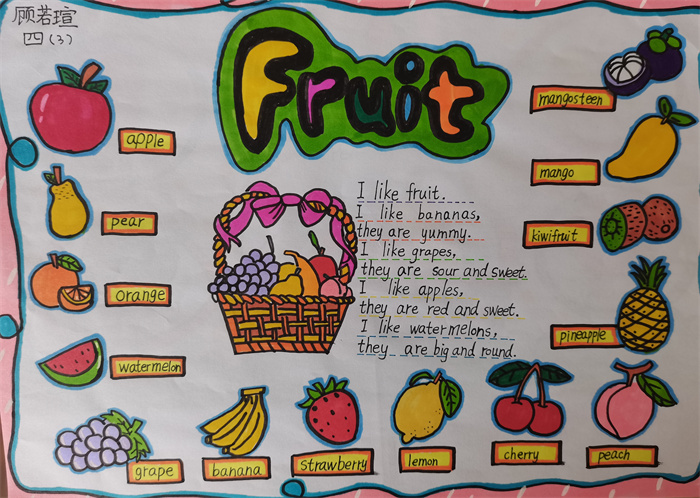 顾若瑄
四(3)
Fruit
apple
pear
orange
watermelon
grape
banana
strawberry
lemon
cherry
peach
pineapple
kiwifruit
mango
mangosteen
I like fruit.
I like bananas,
they are yummy.
I like grapes,
they are sour and sweet.
I like apples,
they are red and sweet.
I like watermelons,
they are big and round.